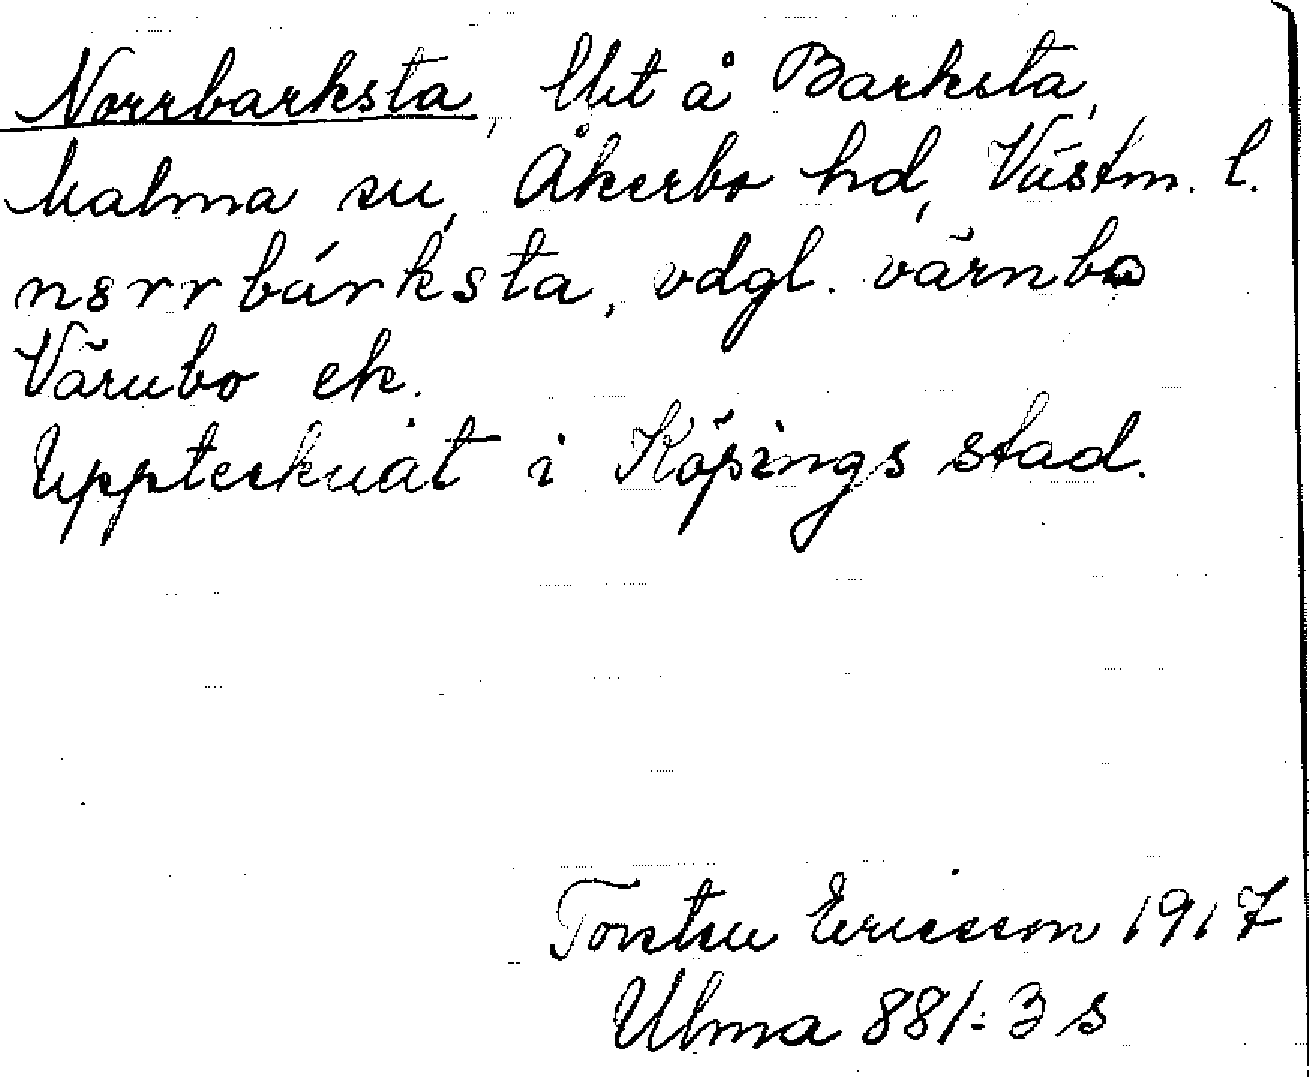 Norrbarksta, Ut å Barksta,
Malma sn, Åkerbo hd, Västm. l.
nsrrbárksta, vdgl. värnbo
Värnbo ek.
Upptecknat i Köpings stad.
Torsten Ericsson 1917
Ulma 881:3 s